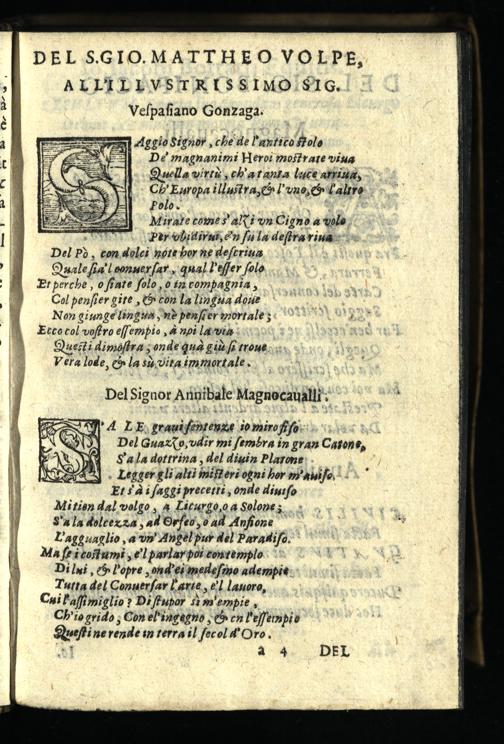 DEL S.GIO. MATTHEO VOLPE,
ALL'ILLVSTRISSIMO SIG.
Vespasiano Gonzaga.
SAggio Signor, che de l'antico stolo
De' magnanimi Heroi mostrate viua
Quella virtù, ch'a tanta luce arriua,
Ch'Europa illustra, & l'vno, & l'altro
Polo.
Mirate come s'alzi vn Cigno a volo
Per vbidirui, e'n sù la destra riua
Del Pò, con dolci note hor ne descriua
Quale sia'l conuersar, qual l'esser solo
Et perche, o siate solo, o in compagnia,
Col pensier gite, & con la lingua doue
Non giunge lingua, nè pensier mortale;
Ecco col vostro essempio, à noi la via
Questi dimostra, onde quà giù si troue
Vera lode, & la sù vita immortale.
Del Signor Annibale Magnocaualli.
SALE graui sentenze io miro fiso
Del Guazzo, vdir mi sembra in gran Catone,
S'a la dottrina, del diuin Platone
Legger gli alti misteri ogni hor m'auiso.
Et s'à i saggi precetti, onde diuiso
Mi tien dal volgo, a Licurgo, o a Solone;
S'a la dolcezza, ad Orfeo, o ad Anfione
L'agguaglio, a vn'Angel pur del Paradiso.
Ma se i costumi, e'l parlar poi contemplo
Di lui, & l'opre, ond'ei medesmo adempie
Tutta del Conuersar l'arte, e'l lauoro,
Cui l'assimiglio? Di stupor si m'empie,
Ch'io grido, Con el'ingegno, & cn l'essempio
Questi ne rende in terra il secol d'Oro.
a 4 DEL